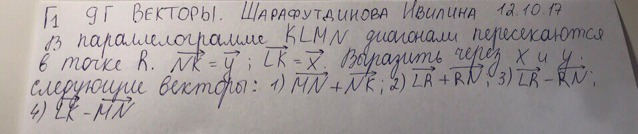 Г1 9Г ВЕКТОРЫ. ШАРАФУТДИНОВА ИВИЛИНА 12.10.17
В параллелограмме KLMN диагонали пересекаются
в точке R. NK = y ; LK = x. Выразить через x и y
следующие векторы: 1) MN + NK; 2) LR + RN; 3) LR - RN;
4) LK - MN